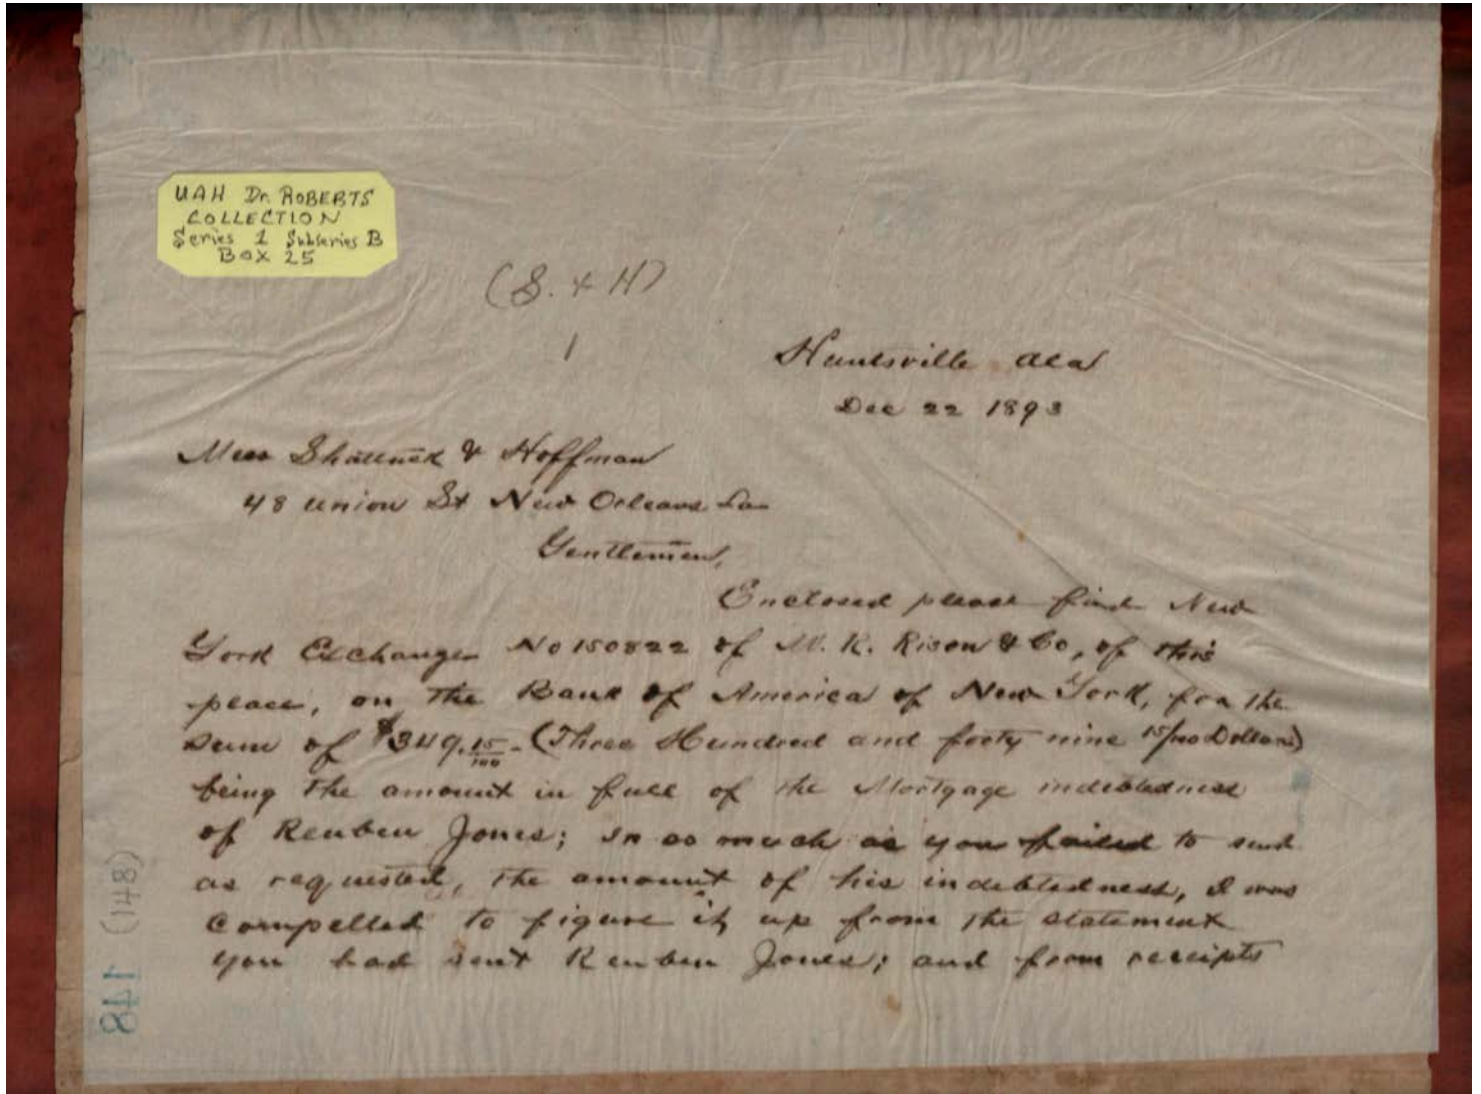 UAH Dr. ROBERTS
COLLECTION
Series 1 Subseries B
BOX 25
(S. & H)
1
Huntsville Ala
Dec 22 1893
Mess Shattuck & Hoffman
48 Union St New Orleans La
Gentlemen,
Enclosed please find New
York Exchange No 150822 of W. R. Rison & Co, of this
place, on the Bank of America of New York, for the
sum of $349.15/100 - (Three Hundred and forty nine 15/100 Dollars)
being the amount in full of the Mortgage indebtedness
of Reuben Jones; in as much as you failed to send
as requested, the amount of his indebtedness, I was
compelled to figure it up from the statement
you had sent Reuben Jones; and from receipts
(148)
148